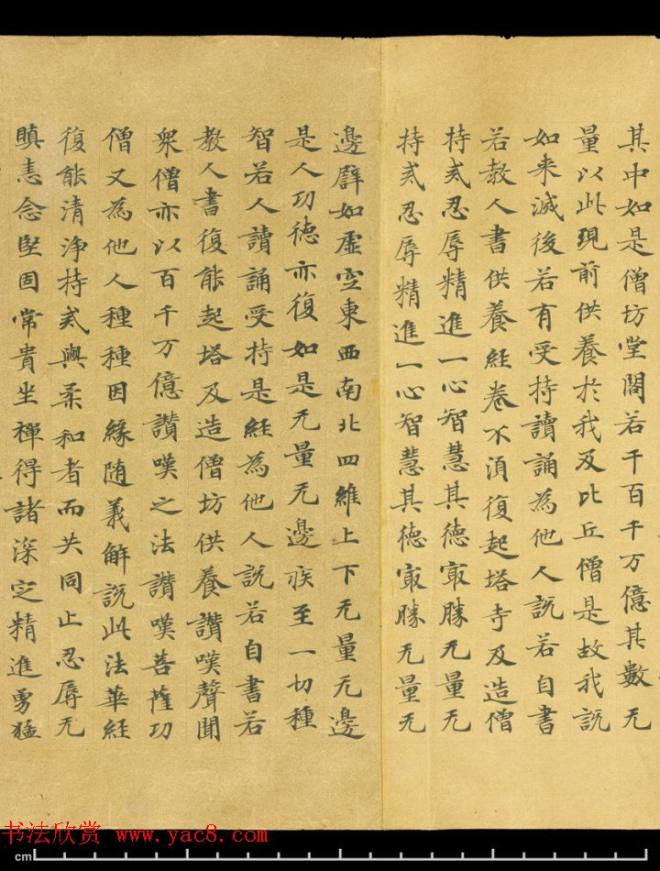 其中如是僧坊堂閣若干百千万億其數无
量以此現前供養於我及比丘僧是故我説
如来滅後若有受持讀誦為他人説若自書
若教人書供養經卷不湏復起塔寺及造僧
持戒忍辱精進一心智慧其徳㝡勝无量无
持戒忍辱精進一心智慧其徳㝡勝无量无
邊譬如虚空東西南北四維上下无量无邊
是人功徳亦復如是无量无邊疾至一切種
智若人讀誦受持是經為他人説若自書若
教人書復能起塔及造僧坊供養讃嘆聲聞
衆僧亦以百千万億讃嘆之法讃嘆菩薩功
僧又為他人種種因緣随義解説此法華經
復能清浄持戒與柔和者而共同止忍辱无
瞋恚念堅固常貴坐禪得諸深定精進勇猛
书法欣赏 www.yac8.com
cm